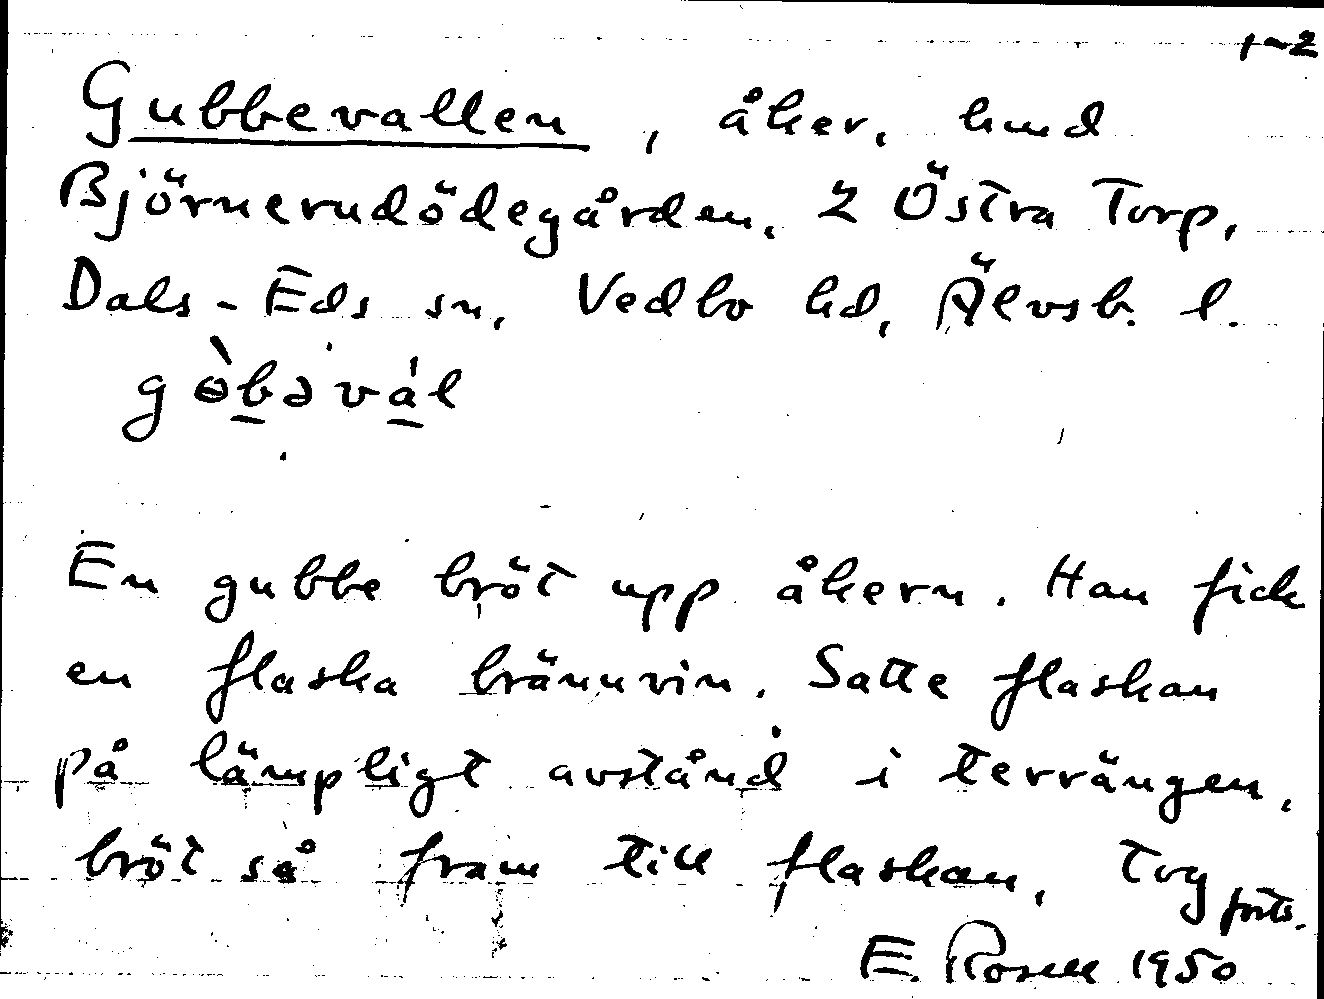 1-2
Gubbevallen, åker, hmd
Björnerudödegården, 2 Östra Torp,
Dals-Eds sn, Vedbo hd, Älvsb. l.
En gubbe bröt upp åkern. Han fick
en flaska brännvin. Satte flaskan
på lämpligt avstånd i terrängen,
bröt så fram till flaskan, tog
forts.
E. Rosell 1950